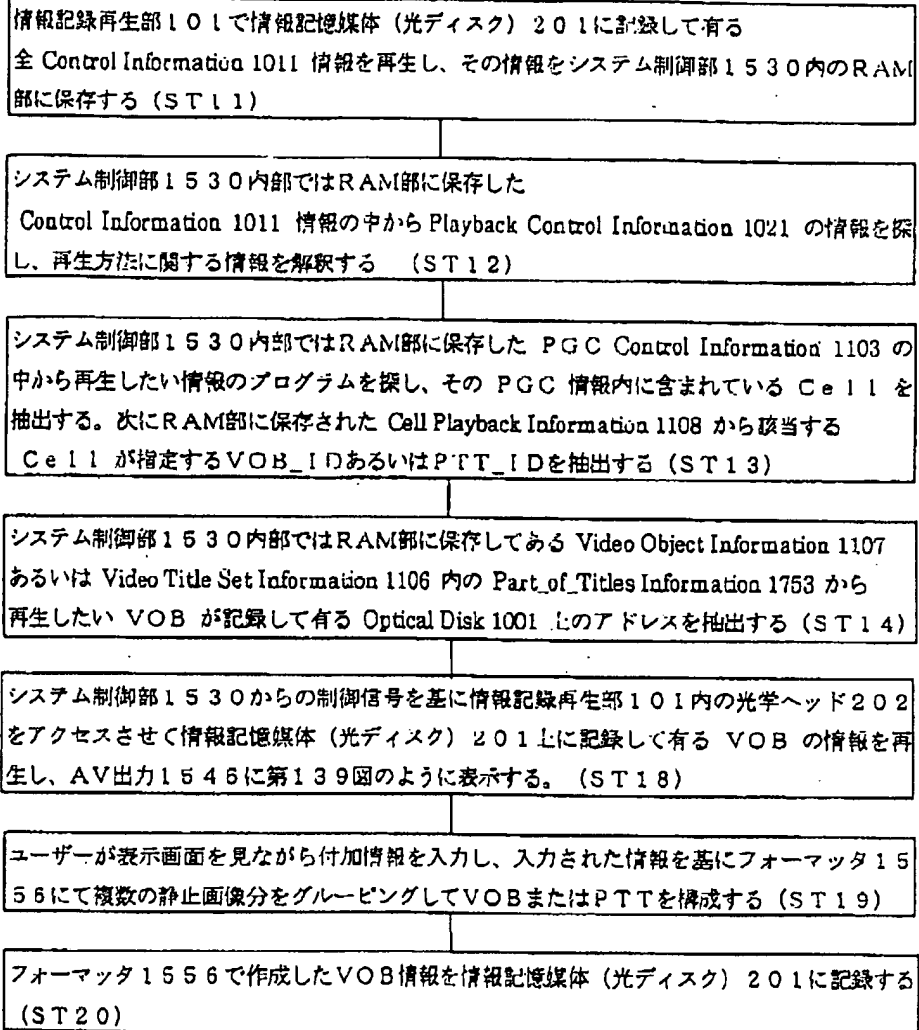 情報記録再生部１０１で情報記憶媒体（光ディスク）２０１に記録して有る
全 Control Information 1011 情報を再生し、その情報をシステム制御部１５３０内のＲＡＭ
部に保存する（ＳＴ１１）
システム制御部１５３０内部ではＲＡＭ部に保存した
Control Information 1011 情報の中から Playback Control Information 1021 の情報を探
し、再生方法に関する情報を解釈する （ＳＴ１２）
システム制御部１５３０内部ではＲＡＭ部に保存した ＰＧＣ Control Information 1103 の
中から再生したい情報のプログラムを探し、その ＰＧＣ 情報内に含まれている Ｃｅｌｌ を
抽出する。次にＲＡＭ部に保存された Cell Playback Information 1108 から該当する
Ｃｅｌｌ が指定するＶＯＢ_ＩＤあるいはＰＴＴ_ＩＤを抽出する（ＳＴ１３）
システム制御部１５３０内部ではＲＡＭ部に保存してある Video Object Information 1107
あるいは Video Title Set Information 1106 内の Part_of_Titles Information 1753 から
再生したい ＶＯＢ が記録して有る Optical Disk 1001 上のアドレスを抽出する（ＳＴ１４）
システム制御部１５３０からの制御信号を基に情報記録再生部１０１内の光学ヘッド２０２
をアクセスさせて情報記憶媒体（光ディスク）２０１上に記録して有る ＶＯＢ の情報を再
生し、ＡＶ出力１５４６に第１３９図のように表示する。（ＳＴ１８）
ユーザーが表示画面を見ながら付加情報を入力し、入力された情報を基にフォーマッタ１５
５６にて複数の静止画像分をグルーピングしてＶＯＢまたはＰＴＴを構成する（ＳＴ１９）
フォーマッタ１５５６で作成したＶＯＢ情報を情報記憶媒体（光ディスク）２０１に記録する
（ＳＴ２０）